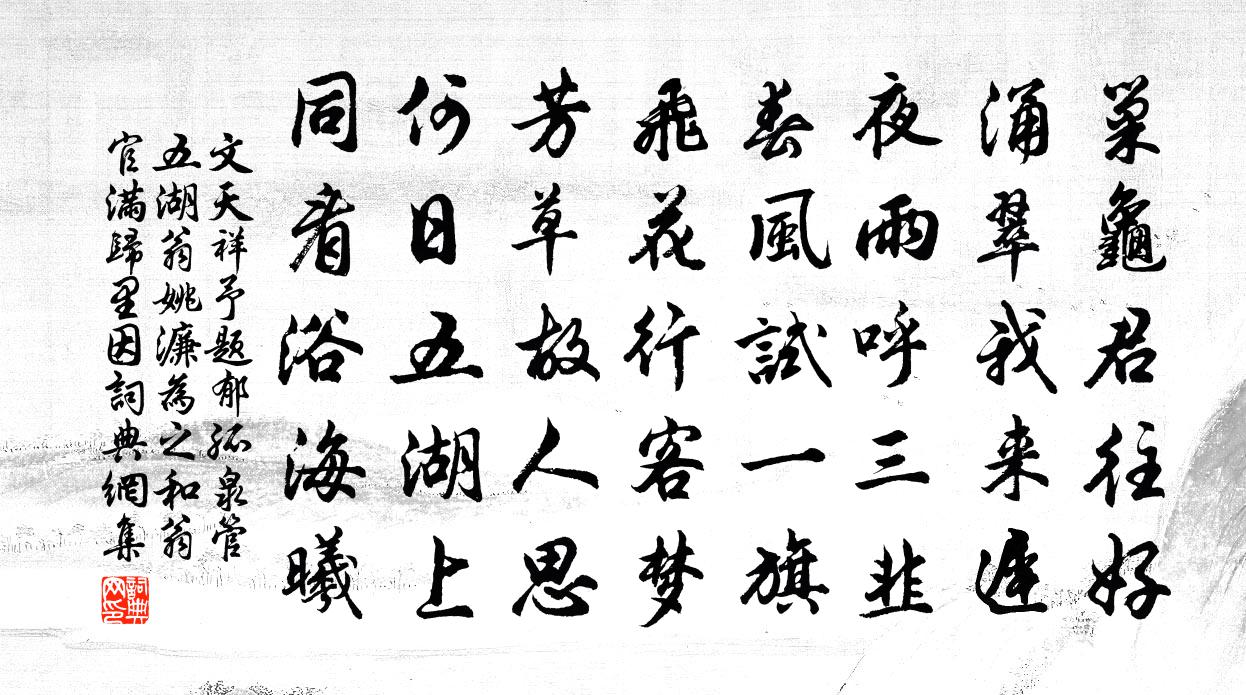 巢龜君往好
涌翠我来遲
夜雨呼三韭
春風試一旗
飛花行客梦
芳草故人思
何日五湖上
同看浴海曦
文天祥予題郁孤泉管
五湖翁姚濂為之和翁
官滿歸里因詞典網集
詞典
网印